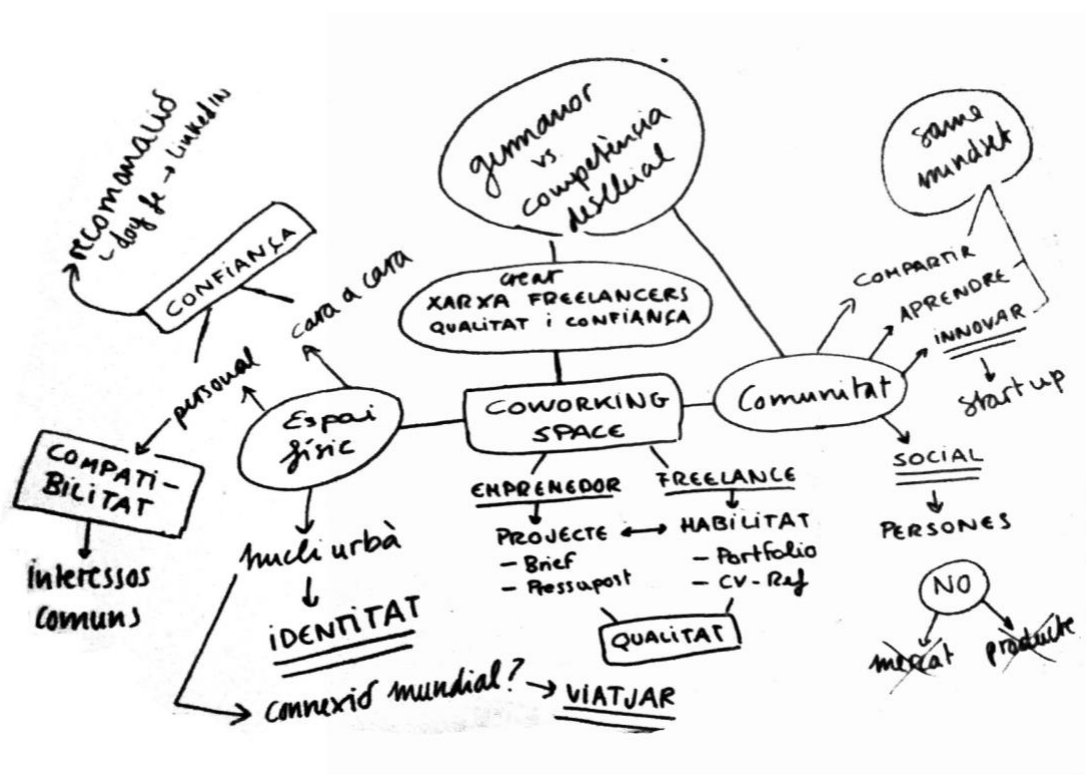 recomanació
doy fe → LinkedIn
CONFIANÇA
cara a cara
personal
COMPATI-
BILITAT
interessos
comuns
Espai
físic
nucli urbà
IDENTITAT
connexió mundial? → VIATJAR
germanor
vs.
competència
deslleial
crear
XARXA FREELANCERS
QUALITAT i CONFIANÇA
COWORKING
SPACE
EMPRENEDOR
PROJECTE
- Brief
- Pressupost
FREELANCE
HABILITAT
- Portfolio
- CV-Ref
QUALITAT
Comunitat
same
mindset
COMPARTIR
APRENDRE
INNOVAR
start up
SOCIAL
PERSONES
NO
mercat
producte